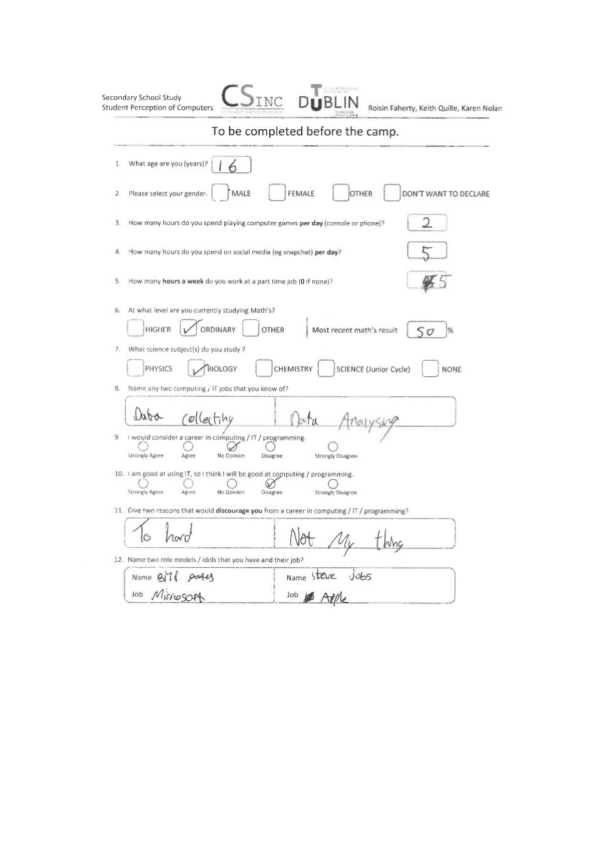 Secondary School Study
Student Perception of Computers
CSINC
DUBLIN
Roisin Faherty, Keith Quille, Karen Nolan
To be completed before the camp.
1. What age are you (years)? 16
2. Please select your gender. MALE FEMALE OTHER DON'T WANT TO DECLARE
3. How many hours do you spend playing computer games per day (console or phone)? 2
4. How many hours do you spend on social media (eg snapchat) per day? 5
5. How many hours a week do you work at a part time job (0 if none)? 5
6. At what level are you currently studying Math's?
HIGHER ✓ ORDINARY OTHER Most recent math's result 50 %
7. What science subject(s) do you study ?
PHYSICS ✓ BIOLOGY CHEMISTRY SCIENCE (Junior Cycle) NONE
8. Name any two computing / IT jobs that you know of?
Data collecting Data Analysing
9. I would consider a career in computing / IT / programming.
Strongly Agree Agree No Opinion Disagree Strongly Disagree
10. I am good at using IT, so I think I will be good at computing / programming.
Strongly Agree Agree No Opinion Disagree Strongly Disagree
11. Give two reasons that would discourage you from a career in computing / IT / programming?
To hard Not My thing
12. Name two role models / idols that you have and their job?
Name Bill gates Name Steve Jobs
Job Microsoft Job Apple